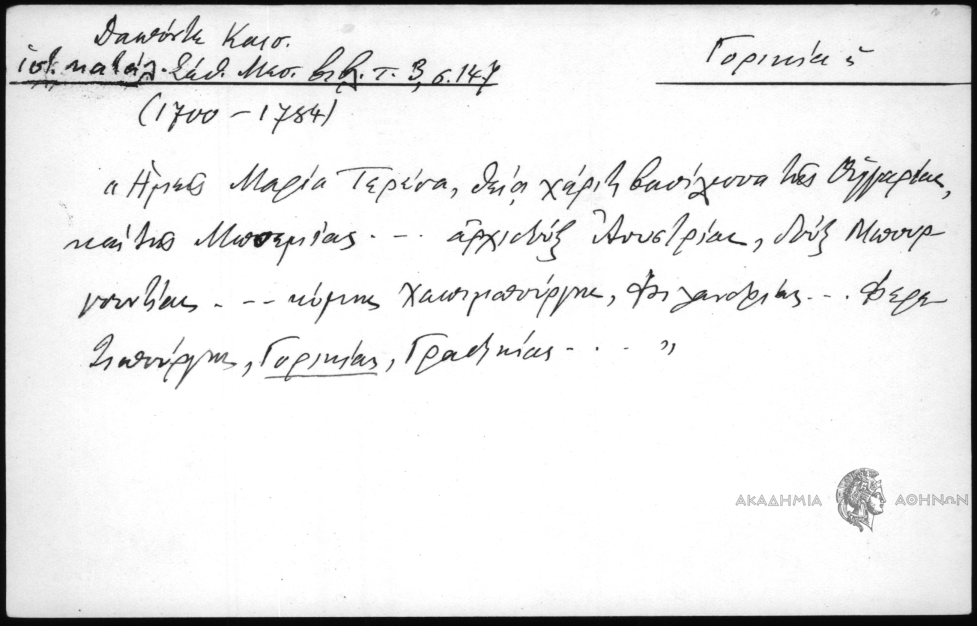 Δαπόντε Καισ.
ἱστ. κατάλ. Σάθ. Μεσ. βιβλ. τ. 3, σ. 147
Γορικία ἡ
(1700 - 1784)
"Ἡμεῖς Μαρία Τερέσα, θείᾳ χάριτι βασίλισσα τῆς Οὐγγαρίας,
καὶ τῆς Μποεμίας . - . ἀρχιδὺξ Ἀουστρίας, δοὺξ Μπουρ
γουντίας . - - κόμης Χαπσμπούργης, Φιλανδρίας . . . Φερε
τσπούργης, Γορικίας, Γραδισκίας - . . . "
ΑΚΑΔΗΜΙΑ ΑΘΗΝΩΝ